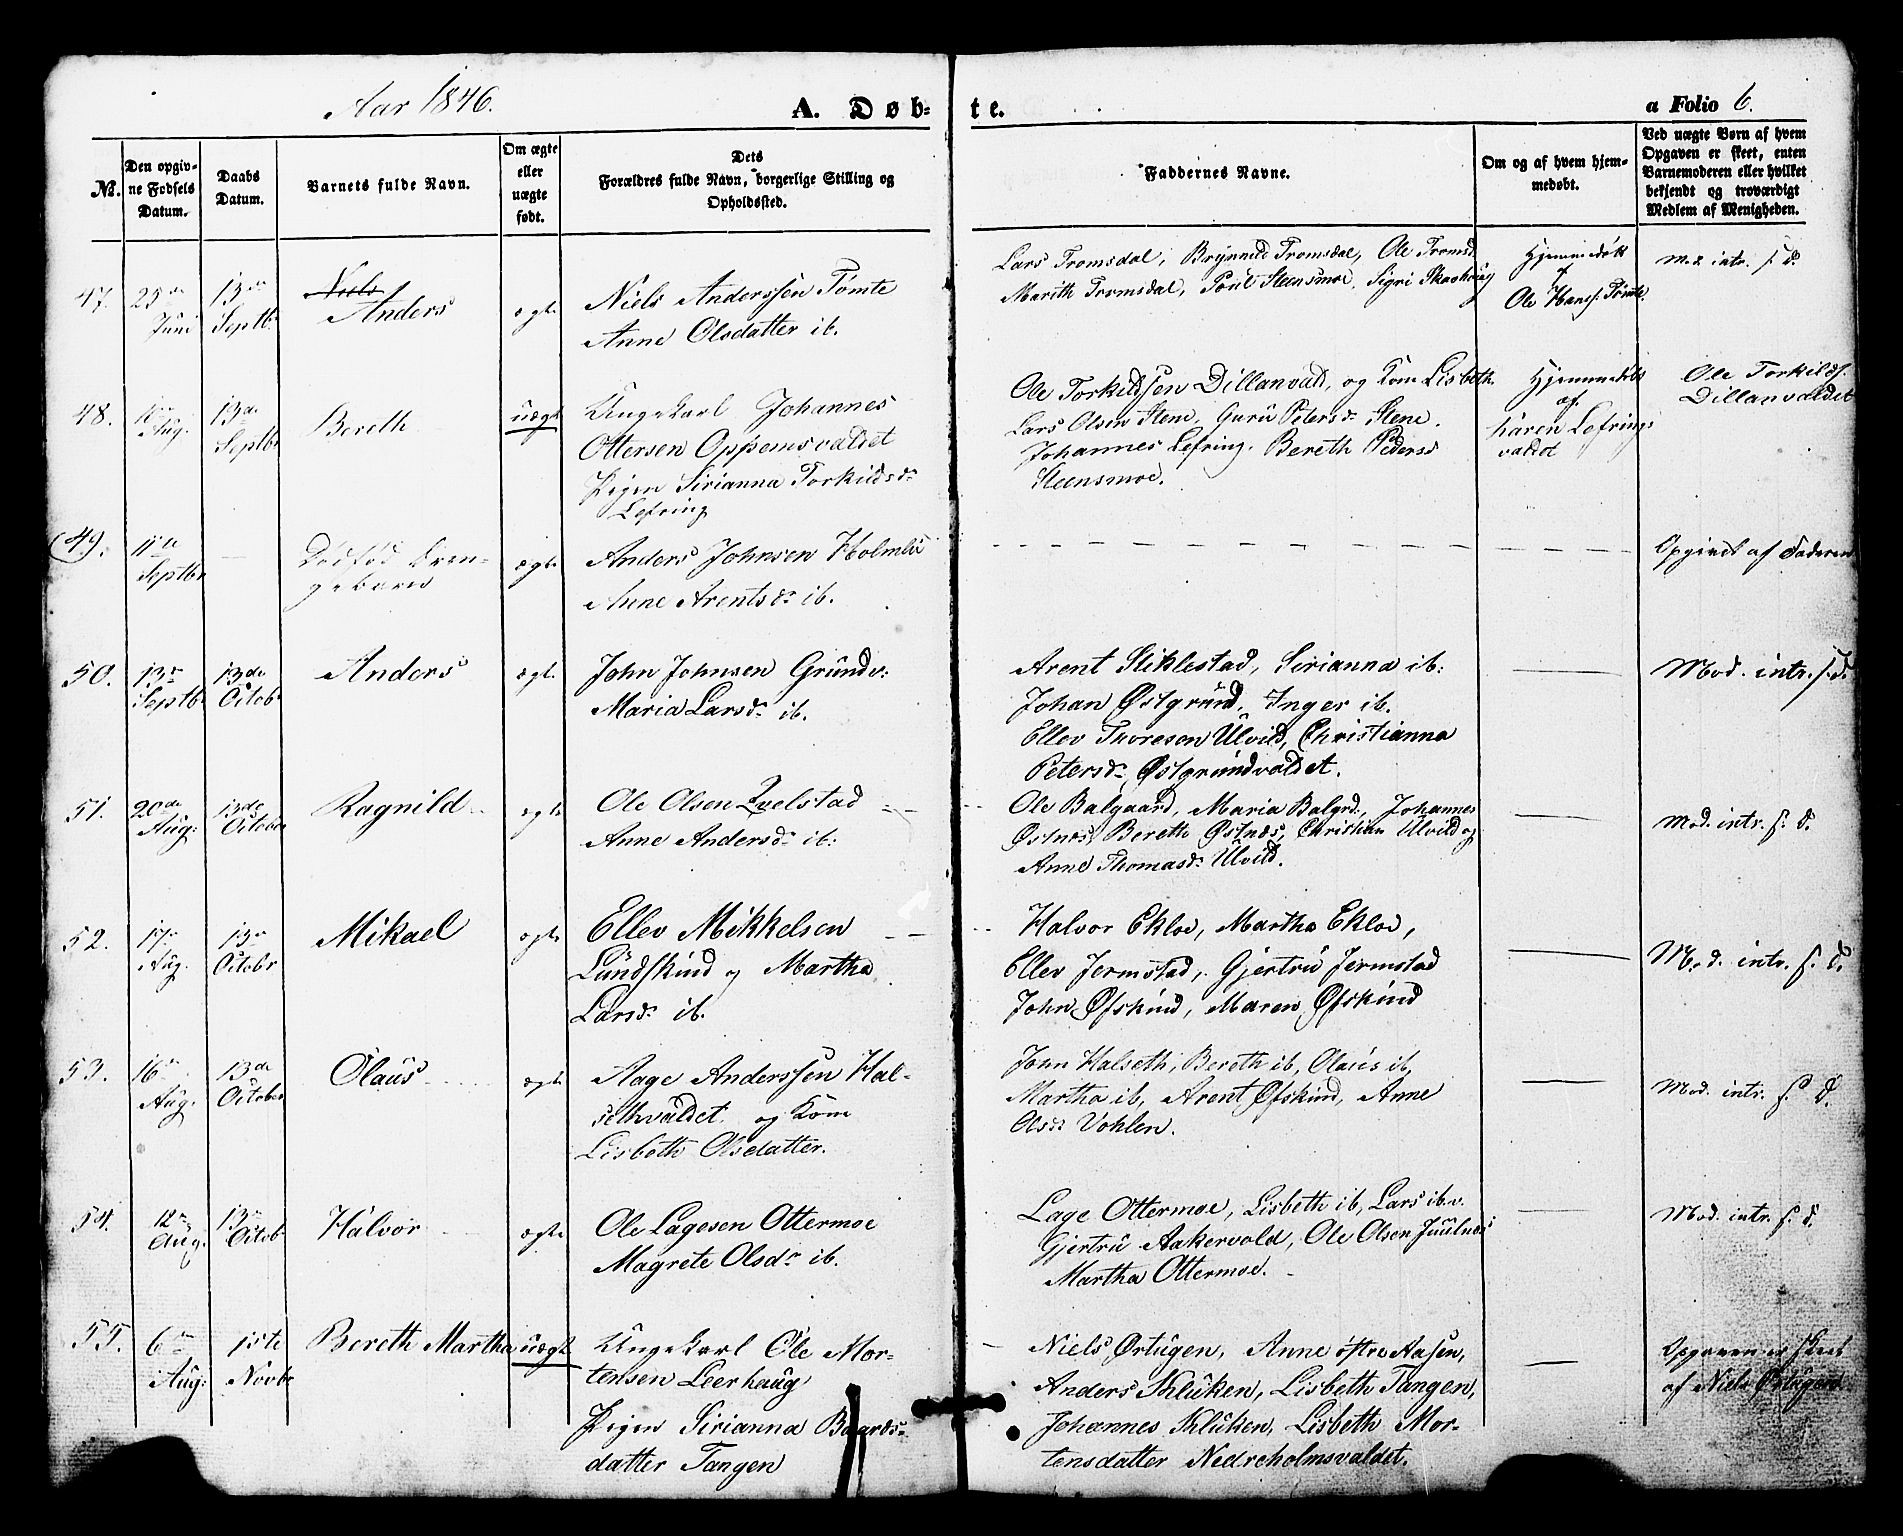 Aar 1846.
A. Døb-te.
a Folio 6.
No.
Den opgiv-
ne Fødsels
Datum.
Daabs
Datum.
Barnets fulde Navn.
Om ægte
eller
uægte
født.
Dets
Forældres fulde Navn, borgerlige Stilling og
Opholdssted.
Faddernes Navne.
Om og af hvem hjem-
medøbt.
Ved uægte Børn af hvem
Opgaven er skeet, enten
Barnemoderen eller hvilket
bekjendt og troværdigt
Medlem af Menigheden.
47.
25de
Juni
13de
Septbr
Niels
Anders
ægte
Niels Anderssen Tømte
Anne Olsdatter ib.
Lars Tromsdal, Brynnild Tromsdal, Ole Tromsd.
Marith Tromsdal, Poul Steensmoe, Sigri Skavhoug
Hjemmedøbt
af
Ole Hanss. Tømte.
intr. s. d.
48.
Aug.
13de
Septbr
Bereth
uægt
Ungekarl Johannes
Ottersen Oppemsvaldet
Pigen Sirianna Torkildsdr
Lefring
Ole Torkildsen Dillanvald, og Kone Lisbeth.
Lars Olsen Stene, Guru Petersdr Stene.
Johannes Lefring, Bereth Pedersd
Steensmoe.
Hjemmedøbt
af
Karen Lefrings
valdet
Ole Torkilds.
Dillanvaldet
(49).
11te
Septbr
Dødfød Dren-
gebarn
ægte
Anders Johnsen Holmlie
Anne Arentsdr ib.
Opgivet af Faderen
50.
13de
Septbr
13de
Octobr
Anders
ægt.
John Johnsen Grundv:
Maria Larsdr ib.
Arent Stiklestad, Sirianna ib:
Johan Østgrund, Inger ib.
Ellev Thoresen Ulvild, Christianna
Petersdr Østgrundvaldet.
Mod. intr. s. d.
51.
20de
Aug:
13de
October
Ragnild
ægte
Ole Olsen Qvelstad
Anne Andersdr ib:
Ole Balgaard, Maria Balgrd., Johannes
Østnes, Bereth Østnæs, Christian Ulvild og
Anne Thomasdr Ulvild.
Mod. intr. s. d.
52.
17de
Aug.
13de
Octobr
Mikael
ægte
Ellev Mikkelsen
Lundskind og Martha
Larsdr ib.
Halvor Ekloe, Martha Ekloe,
Ellev Jermstad, Gjertru Jermstad
John Øfskind, Maren Øfskind
Mod. intr. s. d.
53.
16de
Aug.
13de
October
Olaus
ægte
Aage Anderssen Hal-
sethvaldet og Kone
Lisbeth Olsdatter.
John Halseth, Bereth ib, Olaus ib,
Martha ib, Arent Øfskind, Anne
Olsdr Vohlen.
Mod. intr. s. d.
54.
12te
Aug.
13de
Octob.
Halvor
ægte
Ole Lagesen Ottermoe
Magrete Olsdr ib.
Lage Ottermoe, Lisbeth ib, Lars ib.
Gjertru Aakervold, Ole Olsen Juulnes
Martha Ottermoe.
Mod. intr. s. d.
55.
6te
Aug:
1ste
Novbr
Bereth Martha
uægt
Ungekarl Ole Mor-
tensen Leerhaug
Pigen Sirianna Baards-
datter Tangen
Niels Ørtugen, Anne østre Aasen,
Anders Kluken, Lisbeth Tangen,
Johannes Kluken, Lisbeth Mor-
tensdatter Nedreholmsvaldet.
Opgaven er skeet
af Niels Ørtugen